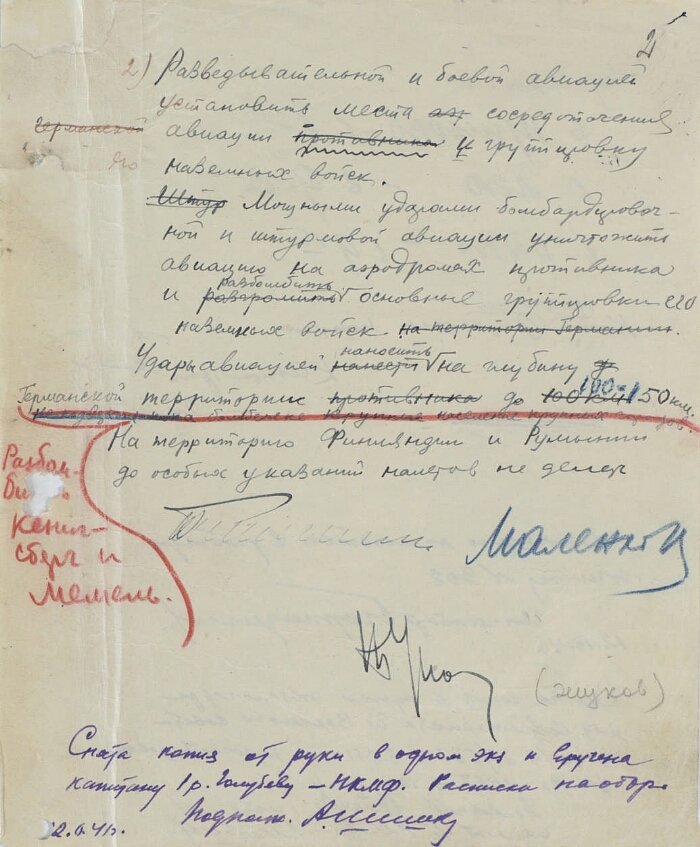 2
2) Разведывательной и боевой авиацией
установить места сосредоточения
германской
авиации противника и группировку
его
наземных войск.
Штур Мощными ударами бомбардировоч-
ной и штурмовой авиации уничтожить
авиацию на аэродромах противника
разбомбить
и разгромить основные группировки его
наземных войск на территории Германии.
наносить
Удары авиацией нанести на глубину
Германской территории противника до 100 км 100-150 км.
На территорию Финляндии и Румынии
до особых указаний налетов не делать
Разбом-
бить
Кениг-
сберг и
Мемель.
Маленков
Жуков
(Жуков)
Снята копия от руки в одном экз и вручена
капитану 1 р. Голубеву – НКМФ. Расписка на обор.
Подполк.
22.6.41г.